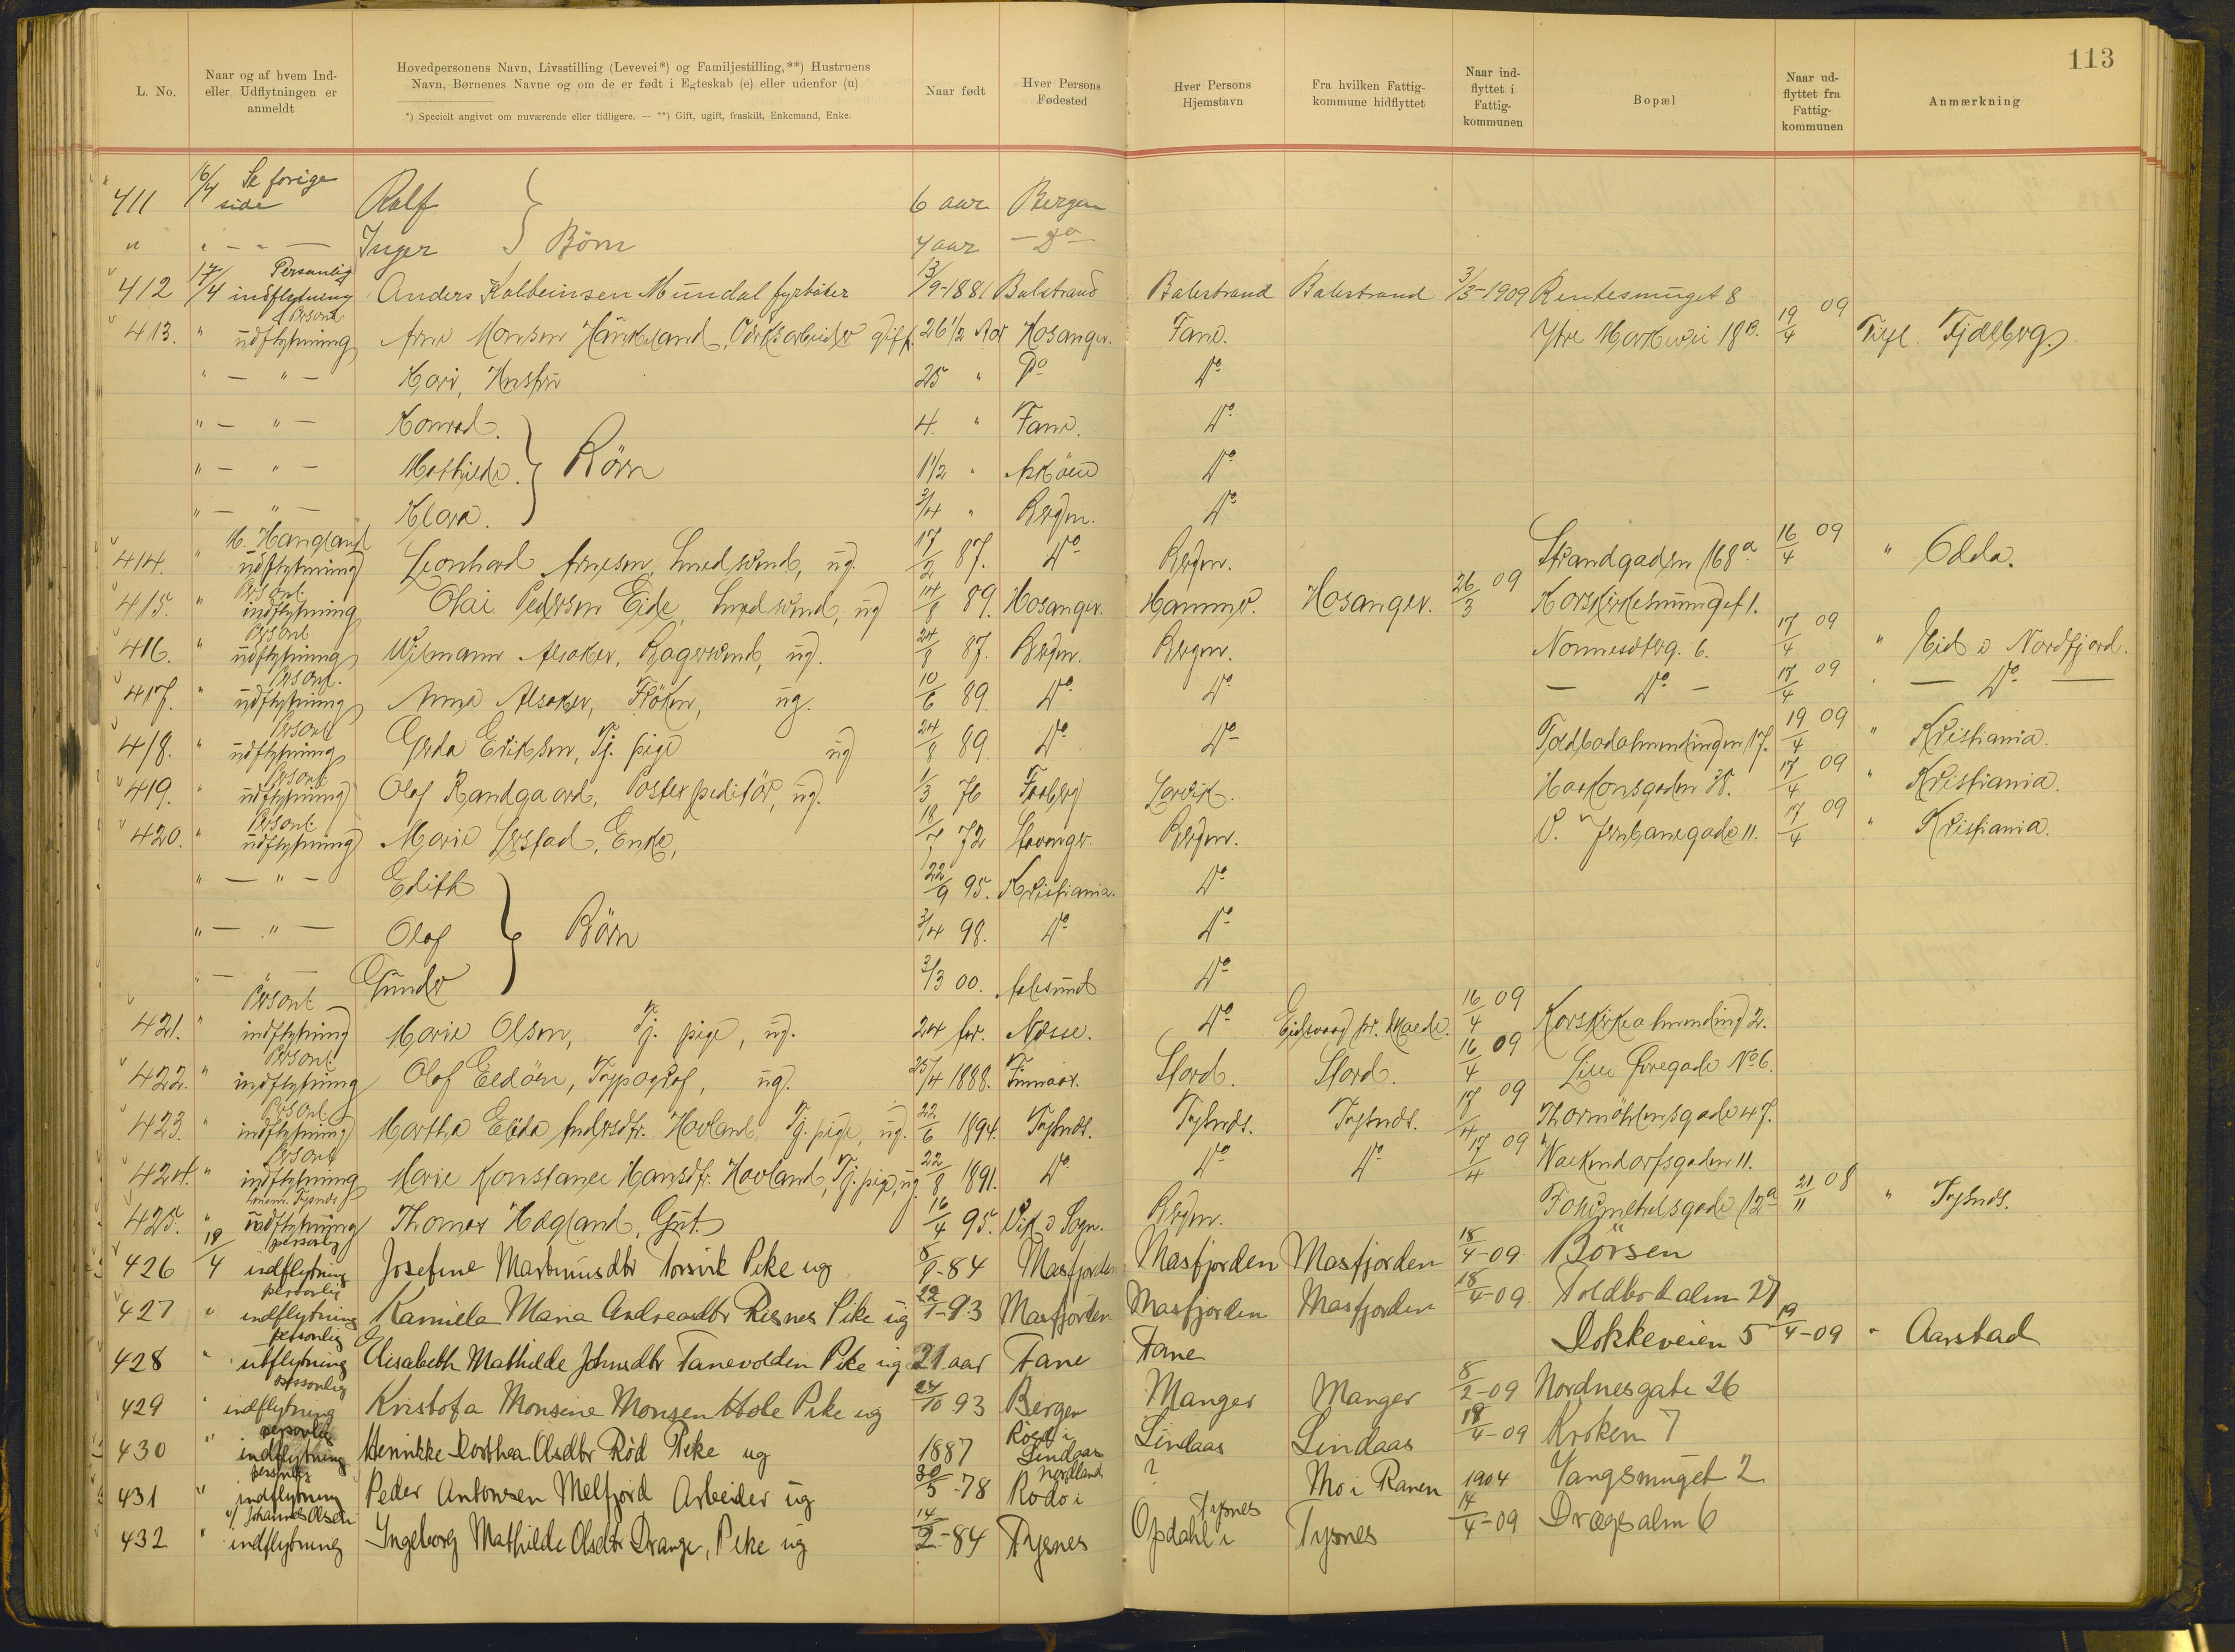 113
L. No. Naar og af hvem Ind- eller Udflytningen er anmeldt Hovedpersonens Navn, Livsstilling (Levevei*) og Familjestilling,**) Hustruens Navn, Børnenes Navne og om de er født i Egteskab (e) eller udenfor (u) Naar født Hver Persons Fødested Hver Persons Hjemstavn Fra hvilken Fattig-kommune hidflyttet Naar ind-flyttet i Fattig-kommunen Bopæl Naar ud-flyttet fra Fattig-kommunen Anmærkning
*) Specielt angivet om nuværende eller tidligere. — **) Gift, ugift, fraskilt, Enkemand, Enke.
411 16/4 Se forige side Rolf } 6 aar Bergen
" " — " — Inger } Börn 4 aar — Do —
412 17/4 Personlig indflytning Anders Kolbeinsen Mundal fyrböter 13/9-1881 Balestrand Balestrand Balestrand 3/3-1909 Rentesmuget 8
413. " Personl. udflytning Arne Monsen gift. 26 1/2 Aar Hosanger. Fane. Ytre Markevei 18 B. 19/4 09 Tilfl. Fjelberg.
" — " — Kari, Hustru 25 " Do Do
" — " — Konrad. 4. " Fane. Do
" — " — Mathilde. } Börn 1 1/2 " Asköen Do
" — " — Klara. 3/4 " Bergen. Do
414. " M. Haugland udflytning Leonhard Arnesen, Smedsvend, ug. 17/2 87. Do Bergen. Strandgaden 168 a 16/4 09 " Odda.
415. " Personl. indflytning Olai Pedersen Eide, Smedsvend, ug 14/8 89. Hosanger. Hammer. Hosanger. 26/3 09 Korskirkesmuget 1.
416. " Personl. udflytning Wilmann Alsaker, Bagersvend, ug. 24/8 87. Bergen. Bergen. Nonnesæterg. 6. 17/4 09 " Eid i Nordfjord.
417. " Personl. udflytning Anna Alsaker, Fröken, ug. 10/6 89. Do Do — Do — 17/4 09 " — Do —
418. " Personl. udflytning Gerda Eriksen, Tj. pige ug 24/8 89. Do Do Toldbodalmendingen 17. 19/4 09 " Kristiania.
419. " Personl. udflytning Olaf Randgaard, Postexpeditör, ug. 1/3 76 Larvik. Haakonsgaden 38. 17/4 09 " Kristiania.
420. " Personl. udflytning Marie Enke, 18/7 72 Stavanger. Bergen. V. Jernbanegade 11. 17/4 09 " Kristiania.
" — " — Edith } 22/9 95. Kristiania. Do
" — " — Olaf } Börn 3/4 98. Do Do
" — — Gundr } 3/3 00. Aalesund Do
421. " Personl. indflytning Marie Olsen, Tj. pige, ug. 24 Aar. Næsse. Do 16/4 09 Korskirkealmending 2.
422. " Personl. indflytning Olaf Eldöen, Typograf, ug. 25/4 1888. Finnaas. Stord. Stord. 16/4 09 Lille Øvregade No 6.
423. " Personl. indflytning Martha Elida Andersdtr. Hovland, Tj. pige, ug. 22/6 1894. Tysnes. Tysnes. Tysnes. 17/4 09 Thormöhlensgade 47.
424. " Personl indflytning Marie Konstance Hansdtr. Hovland, Tj. pige, ug. 22/8 1891. Do Do Do 17/4 09 Walkendorfsgaden 11.
425. " udflytning Thomas Hægland, Gut. 16/4 95. Vik i Sogn. Bergen. 12 a 21/11 08 " Tysnes.
426 19/4 personlig indflytning Josefine Martinusdtr Torsvik Pike ug 8/1-84 Masfjorden Masfjorden Masfjorden 18/4-09 Börsen
427 " personlig indflytning Kamilla Maria Andreasdtr Risnes Pike ug 22/1-93 Masfjorden Masfjorden Masfjorden 18/4-09 Toldbodalm 27
428 " personlig utflytning Elisabeth Mathilde Johnsdtr Tanevolden Pike ug 21 aar Fane Fane Dokkeveien 5 19/4-09 " Aarstad
429 " personlig indflytning Kristofa Monsine Monsen Hole Pike ug 24/10 93 Bergen Manger Manger 8/2-09 Nordnesgate 26
430 " personlig indflytning Henrikke Dorthea Olsdtr Rød Pike ug 1887 Rød i Lindaas Lindaas Lindaas 18/4-09 Kroken 7
431 " personlig indflytning Peder Antonsen Melfjord Arbeider ug 30/5-78 Rödö i Nordland ? Mo i Ranen 1904 Vangsmuget 2
432 " v/ Johannes Olsen indflytning Ingeborg Mathilde Olsdtr Drange, Pike ug 14/2-84 Tysnes Opdahl i Tysnes Tysnes 14/4-09 Dregsalm 6